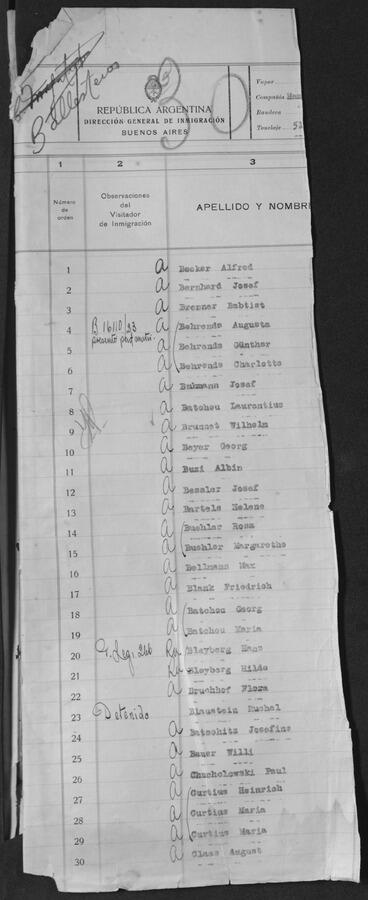 Ballesteros
30
REPÚBLICA ARGENTINA
DIRECCIÓN GENERAL DE INMIGRACIÓN
BUENOS AIRES
Vapor
Compañía
Bandera
Tonelaje 52
1 2 3
Número de orden
Observaciones del Visitador de Inmigración
APELLIDO Y NOMBR
1 a Becker Alfred
2 a Bernhard Josef
3 a Brenner Babtist
4 B 16110/23 a Behrends Augusta
5 a Behrends Günther
6 a Behrends Charlotte
7 a Buhmann Josef
8 a Batchou Laurentius
9 a Brunnet Wilhelm
10 a Beyer Georg
11 a Buzi Albin
12 a Bessler Josef
13 a Bartels Helene
14 a Buehler Rosa
15 a Buehler Margarethe
16 a Bellmann Max
17 a Blank Friedrich
18 a Batchou Georg
19 a Batchou Maria
20 Bleyberg Hans
21 Bleyberg Hilde
22 a Bruchhof Flora
23 Detenido Blaustein Ruchel
24 a Batschitz Josefine
25 a Bauer Willi
26 a Chucholowski Paul
27 a Curtius Heinrich
28 a Curtius Maria
29 a Curtius Maria
30 a Class August